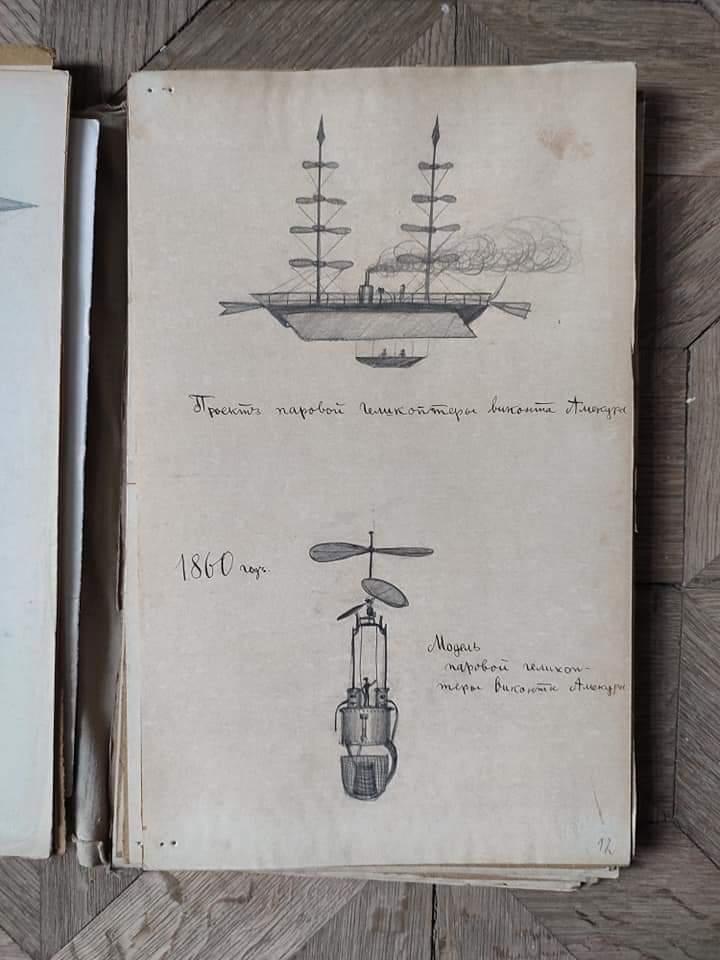 Проектъ паровой геликоптеры виконта Амекура
1860 годъ.
Модель
паровой геликоп-
теры виконта Амекура
12